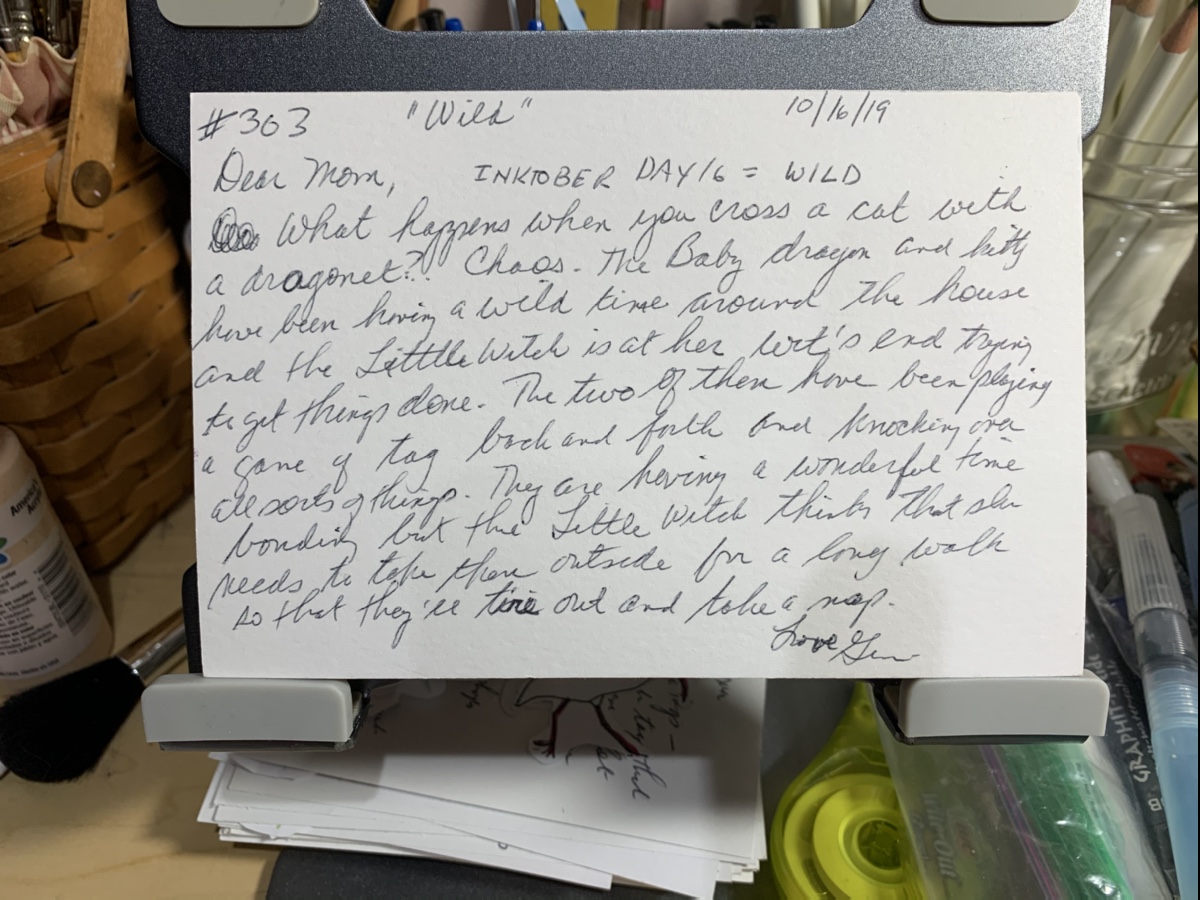 #363 "Wild" 10/16/19
Dear Mom, INKTOBER DAY 16 = WILD
What happens when you cross a cat with
a dragonet?? Chaos. The Baby dragon and kitty
have been having a wild time around the house
and the Little Witch is at her wit's end trying
to get things done. The two of them have been playing
a game of tag back and forth and knocking over
all sorts of things. They are having a wonderful time
bonding but the Little Witch thinks that she
needs to take them outside for a long walk
so that they'll tire out and take a nap.
Love
that
GRAPHIT
B